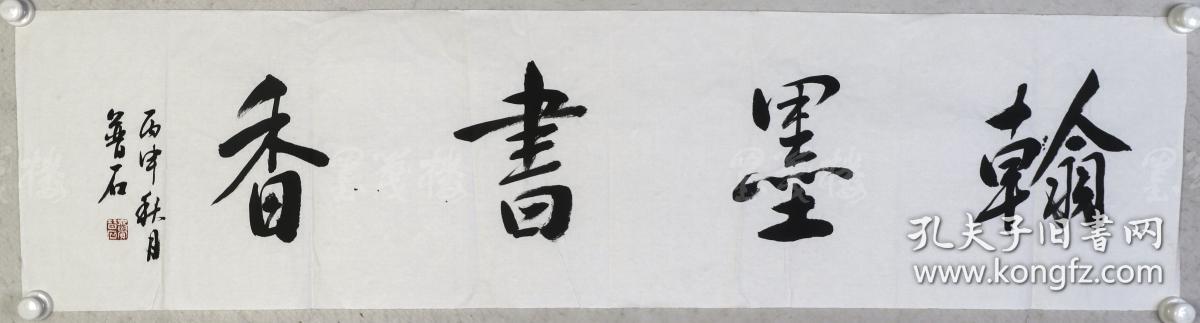 翰墨書香
丙申秋月
普石
孔夫子旧書网
www.kongfz.com